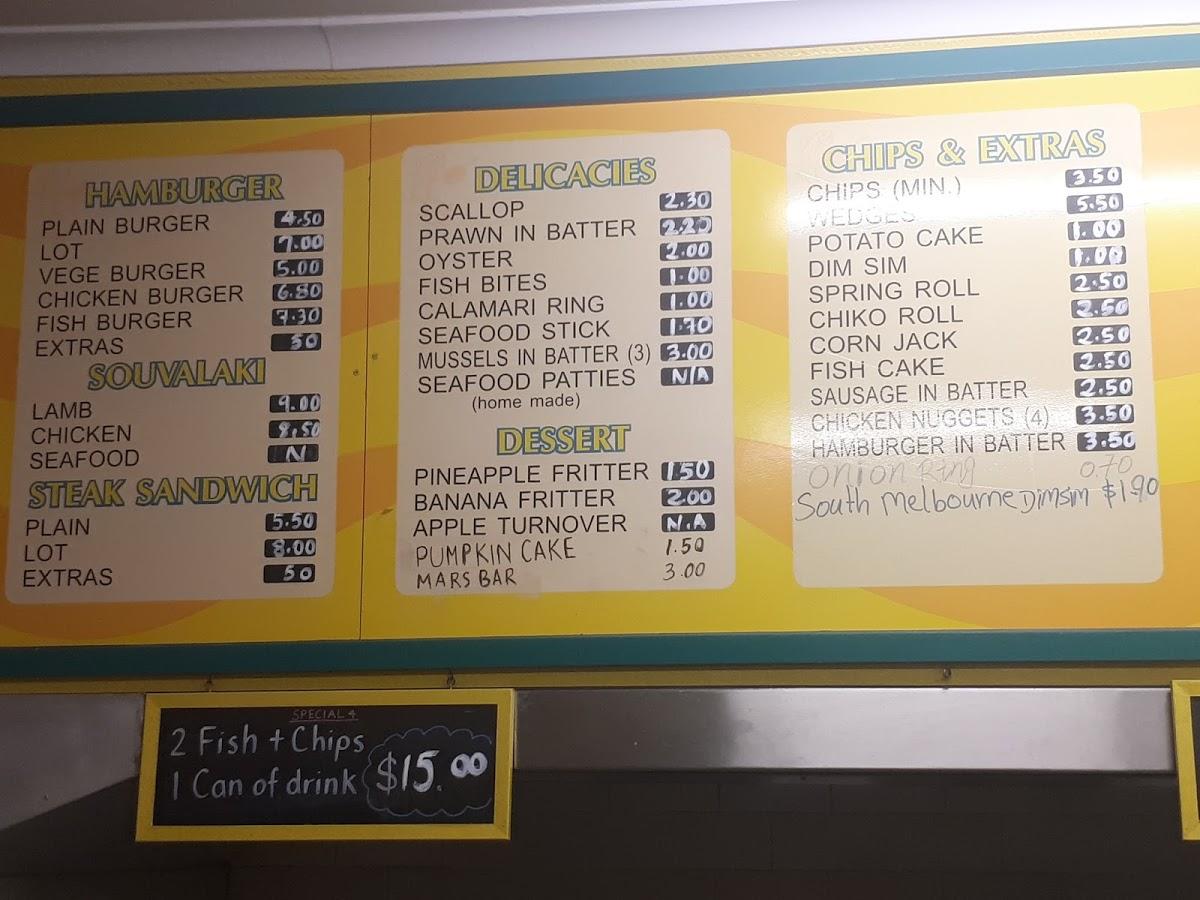 HAMBURGER
PLAIN BURGER 4.50
LOT 7.00
VEGE BURGER 5.00
CHICKEN BURGER 6.80
FISH BURGER 7.30
EXTRAS 50
SOUVALAKI
LAMB 9.00
CHICKEN 8.50
SEAFOOD N
STEAK SANDWICH
PLAIN 5.50
LOT 8.00
EXTRAS 50
DELICACIES
SCALLOP 2.30
PRAWN IN BATTER 2.20
OYSTER 2.00
FISH BITES 1.00
CALAMARI RING 1.00
SEAFOOD STICK 1.70
MUSSELS IN BATTER (3) 3.00
SEAFOOD PATTIES N/A
(home made)
DESSERT
PINEAPPLE FRITTER 1.50
BANANA FRITTER 2.00
APPLE TURNOVER N.A
PUMPKIN CAKE 1.50
MARS BAR 3.00
CHIPS & EXTRAS
CHIPS (MIN.) 3.50
WEDGES 5.50
POTATO CAKE 1.00
DIM SIM 1.00
SPRING ROLL 2.50
CHIKO ROLL 2.50
CORN JACK 2.50
FISH CAKE 2.50
SAUSAGE IN BATTER 2.50
CHICKEN NUGGETS (4) 3.50
HAMBURGER IN BATTER 3.50
Onion Ring 0.70
South Melbourne Dimsim $1.90
SPECIAL 4
2 Fish + Chips
1 Can of drink $15.00